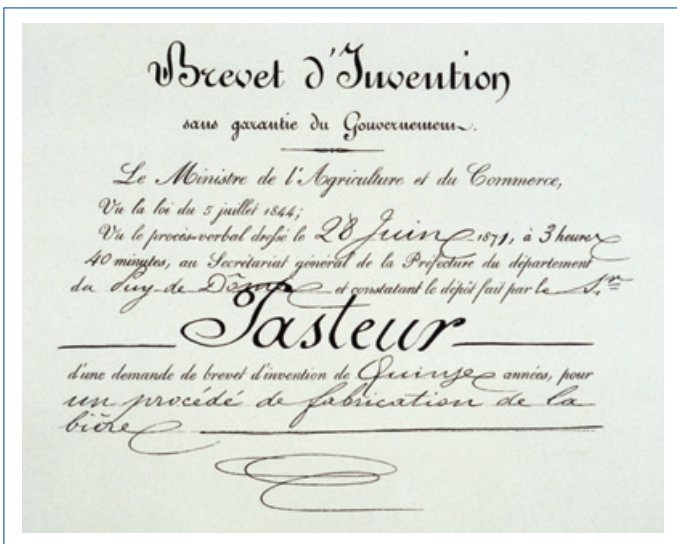 Brevet d'Invention
sans garantie du Gouvernement.
Le Ministre de l'Agriculture et du Commerce,
Vu la loi du 5 juillet 1844;
Vu le procès-verbal dressé le 28 Juin 1871, à 3 heures
40 minutes, au Secrétariat général de la Préfecture du département
du Puy-de-Dôme et constatant le dépôt fait par le S.r
Pasteur
d'une demande de brevet d'invention de Quinze années, pour
un procédé de fabrication de la
bière